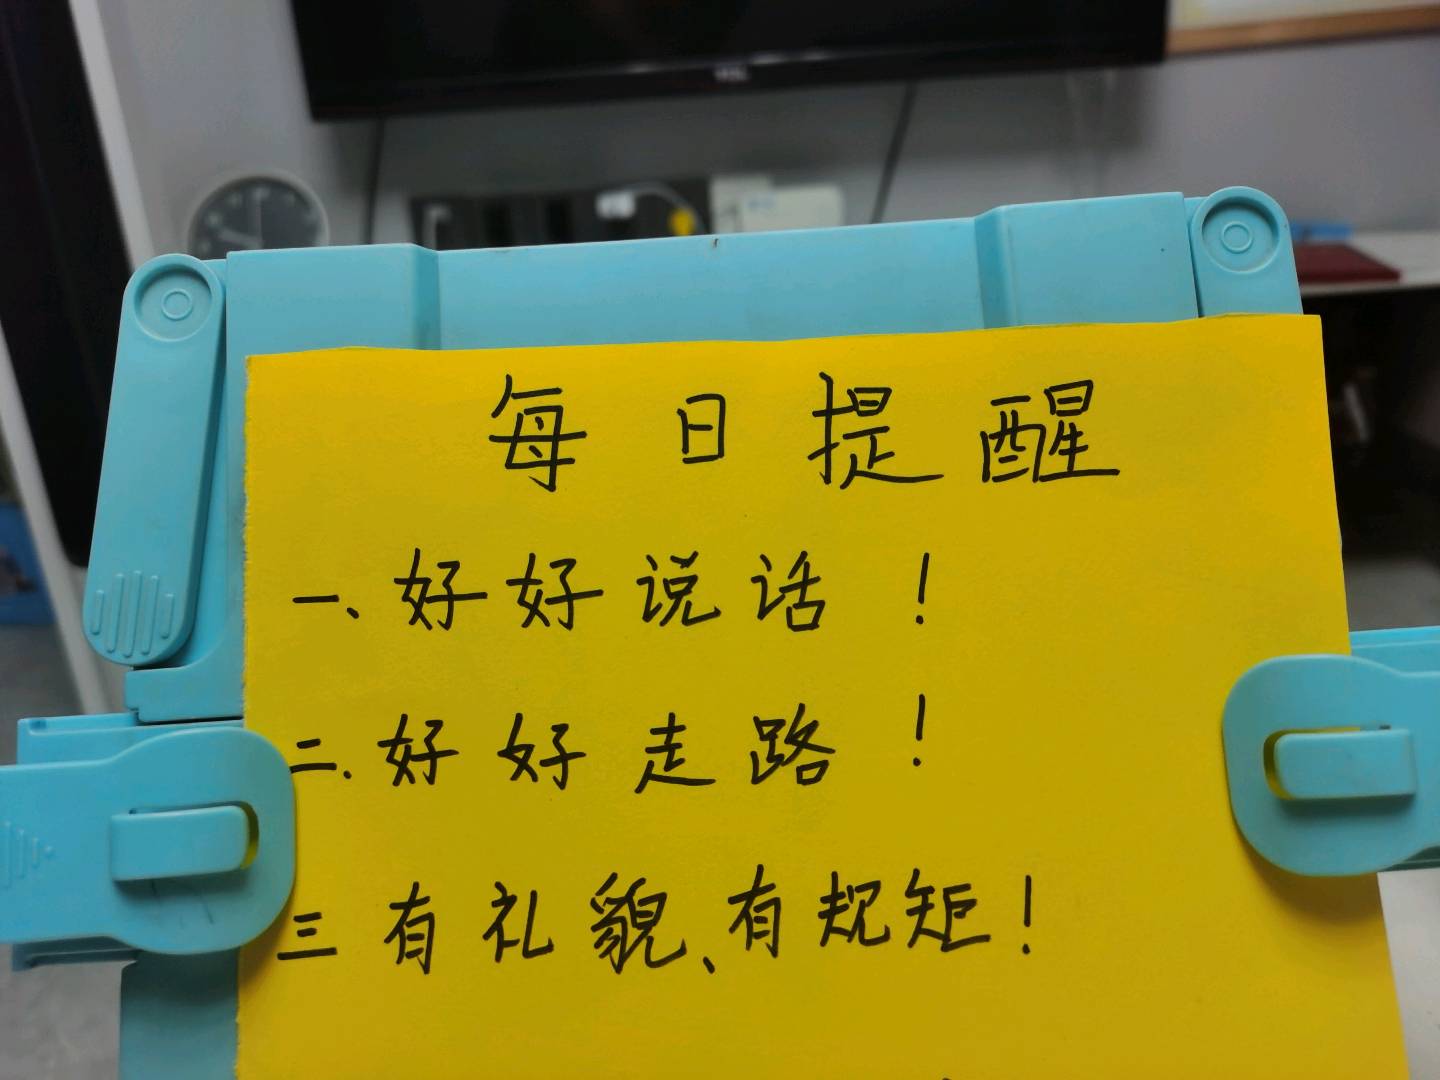 每日提醒
一、好好说话！
二、好好走路！
三 有礼貌、有规矩！